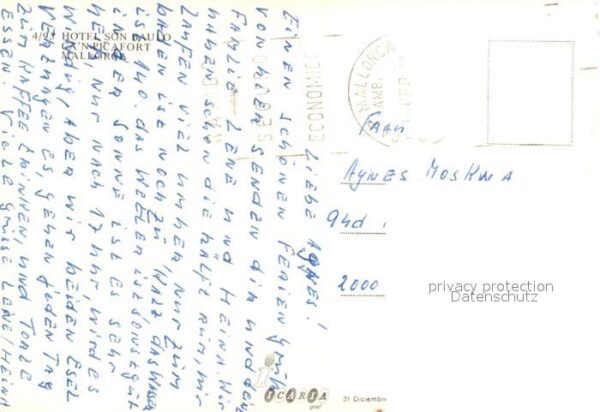 4/93 HOTEL SON BAULO
CA'N PICAFORT
MALLORCA
LIEBE AGNES!
EINEN SCHÖNEN FERIEN GRUß
VON HIER SENDEN DIR UND DEIN
FAMLIE LENE UND HEINI. WIR
HABEN SCHON DIE HÄLFT RUM, WIR
LAUFEN VIEL UMHER, NUR ZUM
BADEN IST NOCH ZU KALT, DAS WASSER
IST 140. DAS WETTER IST SONST GUT
IN DER SONNE IST ES SEHR
HEIß, NUR NACH 17 UHR, WIRD ES
WINDIG, ABER WIR BEIDEN ESEL
VERTRAGEN ES, GEHEN JEDEN TAG
ZUM KAFFEE TRINKEN, UND TORTE
ESSEN. VIELE GRÜSSE LENE/HEINI
SEIS
ECONOMICO
MALLORCA
AMB.
FRAU
AGNES MOSKWA
2000
privacy protection
Datenschutz
ICARIA
31 Diciembre